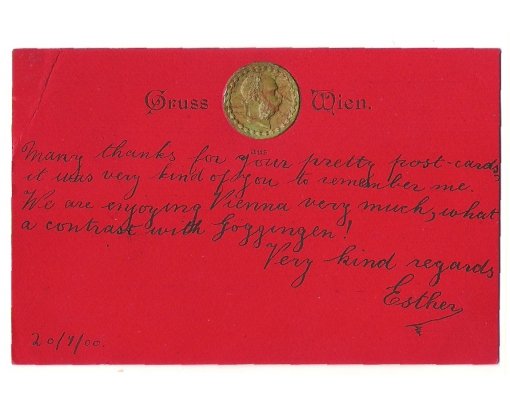 Gruss Wien.
aus
Many thanks for your pretty post-cards,
it was very kind of you to remember me.
We are enjoying Vienna very much, what
a contrast with Goggingen!
Very kind regards
Esther
20/9/00.